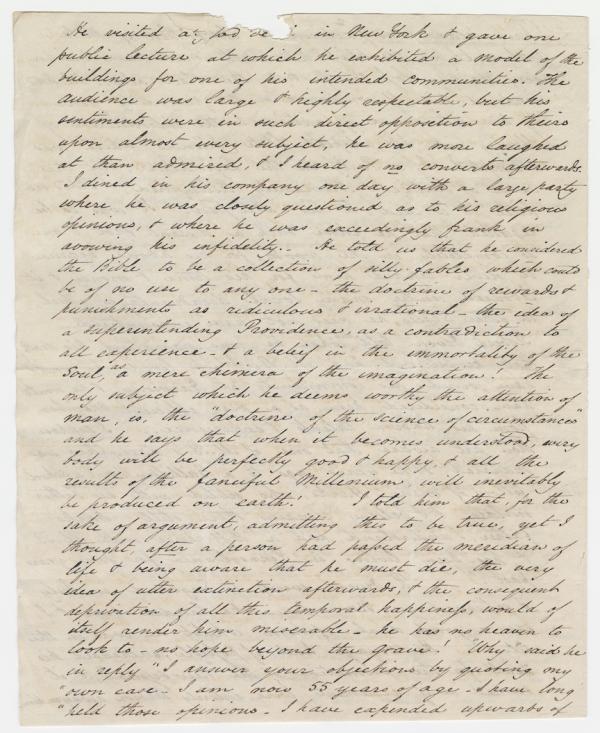 He visited in New York & gave one
public lecture at which he exhibited a model of the
buildings for one of his intended communities. The
audience was large & highly respectable, but his
sentiments were in such direct opposition to theirs
upon almost every subject, he was more laughed
at than admired, & I heard of no converts afterwards.
I dined in his company one day with a large party
where he was closely questioned as to his religious
opinions, & where he was exceedingly frank in
avowing his infidelity. - He told us that he considered
the Bible to be a collection of silly fables which could
be of no use to any one - the doctrine of rewards &
punishments as ridiculous & irrational - the idea of
a superintending Providence, as a contradiction to
all experience - & a belief in the immortality of the
Soul, as a mere chimera of the imagination! The
only subject which he deems worthy the attention of
man, is, the "doctrine of the science of circumstances"
and he says that when it becomes understood, every
body will be perfectly good & happy, & all the
results of the fanciful Millenium will inevitably
be produced on earth! I told him that, for the
sake of argument, admitting this to be true, yet I
thought, after a person had passed the meridian of
life & being aware that he must die, the very
idea of utter extinction afterwards, & the consequent
deprivation of all this temporal happiness, would of
itself render him miserable - he has no heaven to
look to - no hope beyond the grave! "Why" said he
in reply "I answer your objections by quoting my
"own case - I am now 55 years of age - I have long
"held those opinions - I have expended upwards of